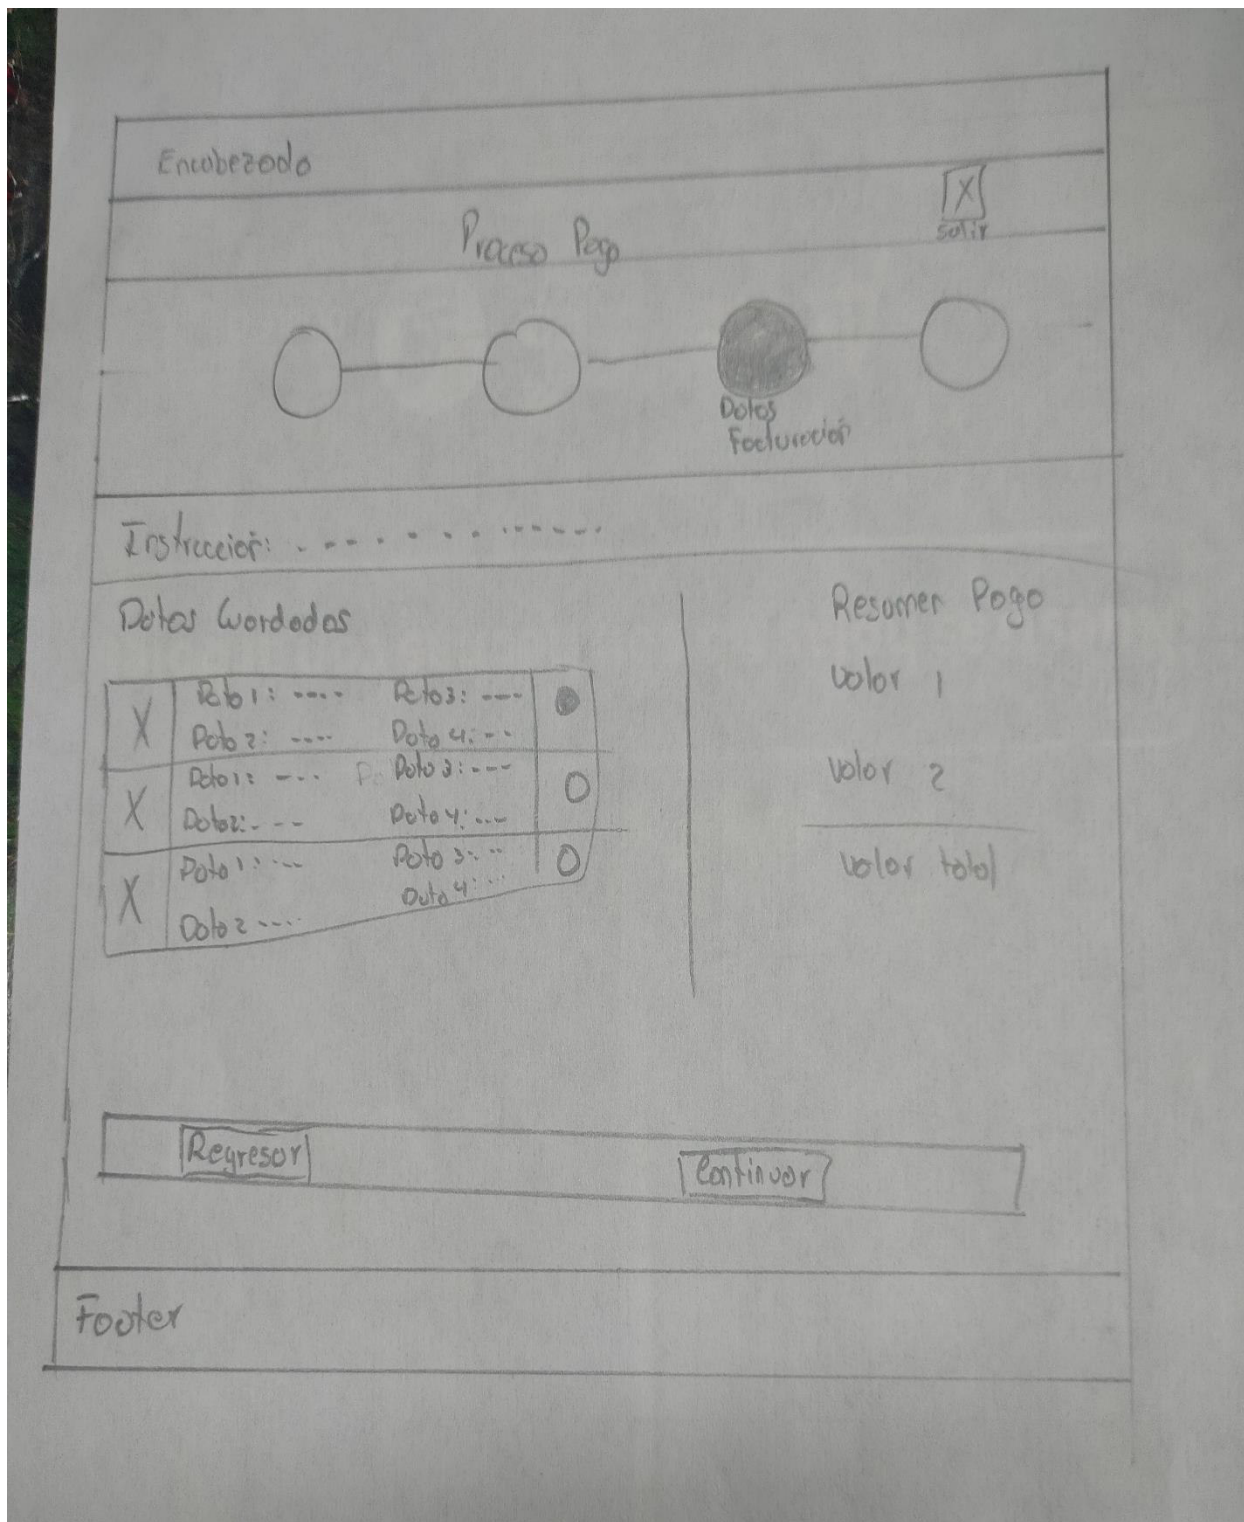 Encabezado
X
Salir
Proceso Pago
Datos
Facturación
Instrucción: . - - - . - . - - - - - -
Datos Guardados
X Dato 1: ---- Dato 3: ---
Dato 2: ---- Dato 4: --
X Dato 1: --- Dato 3: ---
Dato 2: - -- Dato 4: ---
X Dato 1: --- Dato 3: --
Dato 2 ---- Dato 4: --
Resumen Pago
valor 1
valor 2
valor total
Regresar
Continuar
Footer